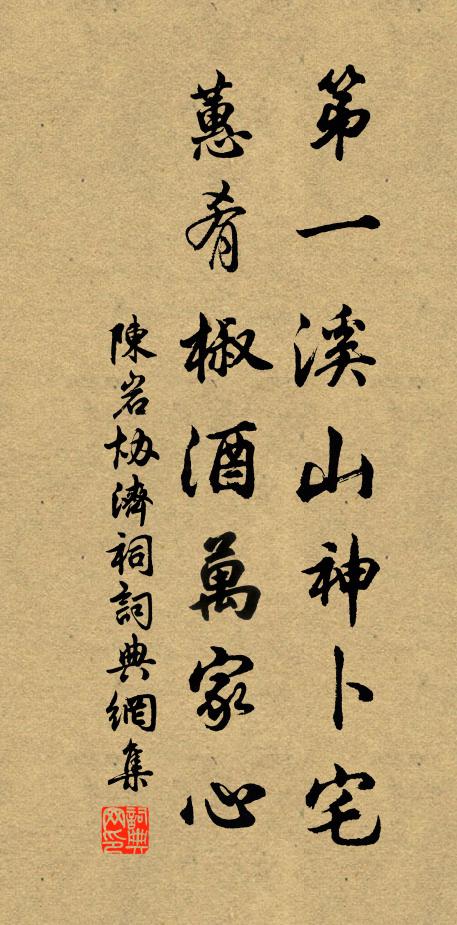 第一溪山神卜宅
蕙肴椒酒萬家心
陳岩協濟祠詞典網集
詞典網印